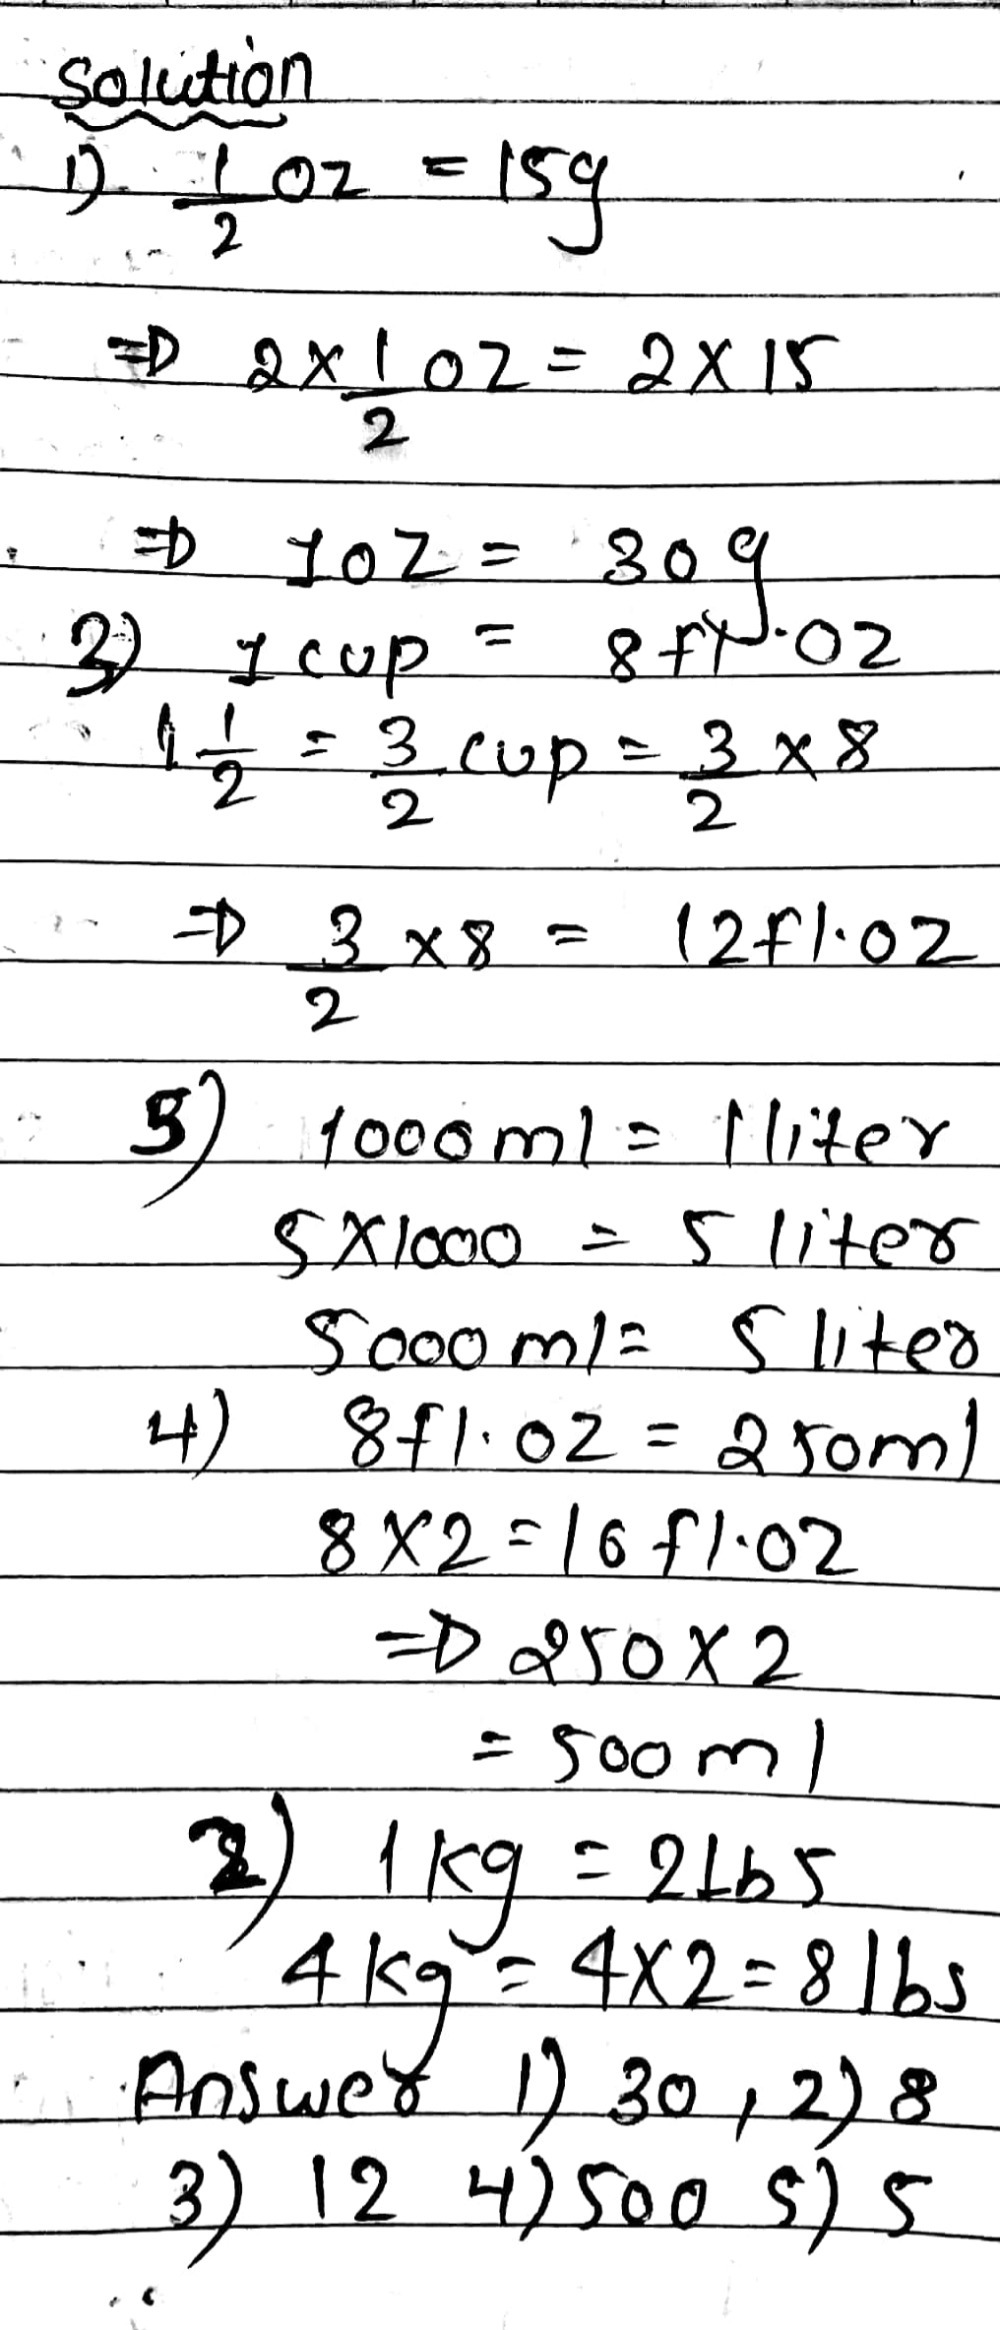 Solution
1) 1/2 oz = 15g
⇒ 2 × 1/2 oz = 2 × 15
⇒ 1 oz = 30g
3) 1 cup = 8 fl.oz
1 1/2 = 3/2 cup = 3/2 × 8
⇒ 3/2 × 8 = 12 fl.oz
5) 1000 ml = 1 liter
5 × 1000 = 5 liter
5000 ml = 5 liter
4) 8 fl.oz = 250 ml
8 × 2 = 16 fl.oz
⇒ 250 × 2
= 500 ml
2) 1 kg = 2 Lbs
4 kg = 4 × 2 = 8 lbs
Answer 1) 30, 2) 8
3) 12 4) 500 5) 5